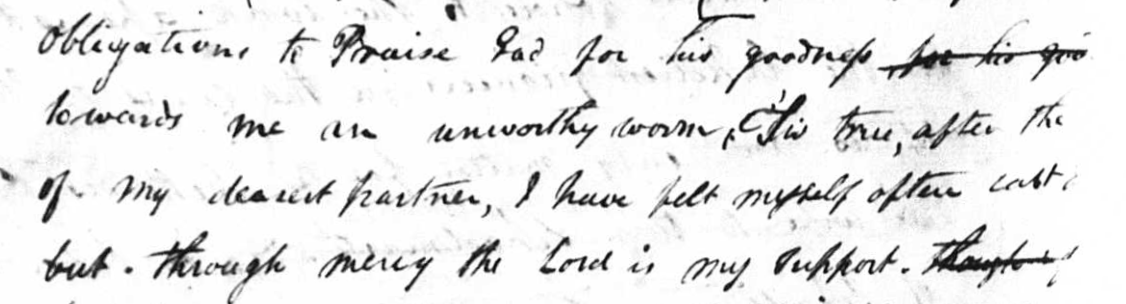 obligations to Praise God for his goodness for his goo
towards me an unworthy worm, 'Tis true, after the
of my dearest partner, I have felt myself often cast
but. through mercy the Lord is my support. though